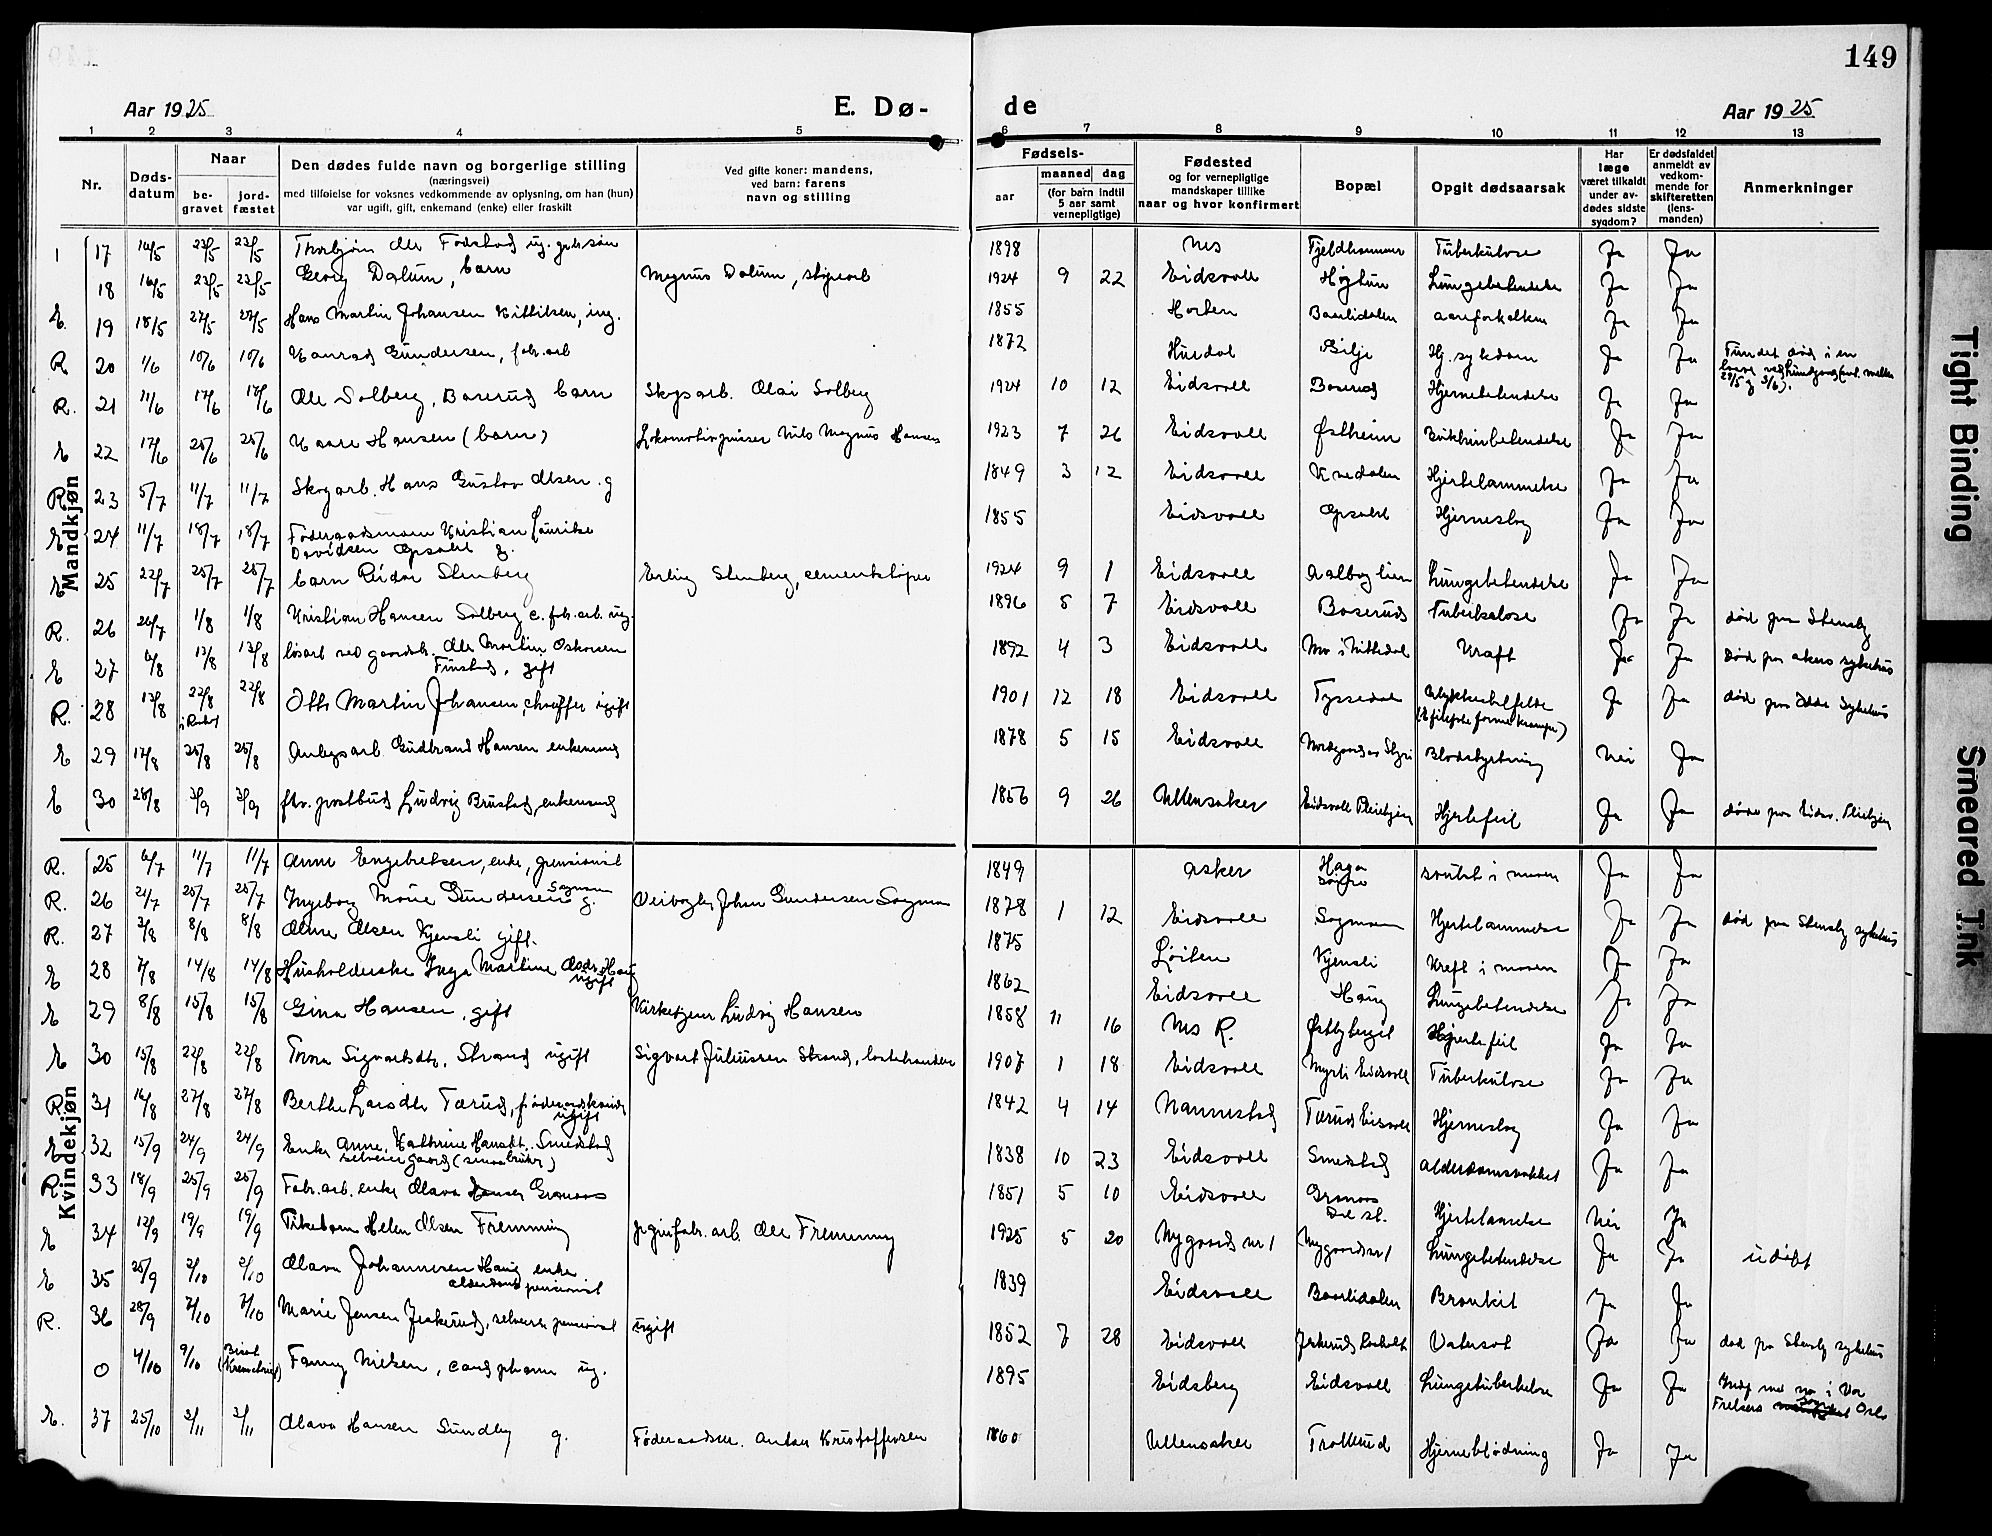 149
Aar 1925 E. Dø- de Aar 1925
1 2 3 4 5 6 7 8 9 10 11 12 13
Nr.
Døds-
datum
Naar
be-
gravet
jord-
fæstet
Den dødes fulde navn og borgerlige stilling
(næringsvei)
med tilføielse for voksnes vedkommende av oplysning, om han (hun)
var ugift, gift, enkemand (enke) eller fraskilt
Ved gifte koner: mandens,
ved barn: farens
navn og stilling
Fødsels-
aar
maaned dag
(for barn indtil
5 aar samt
vernepligtige)
Fødested
og for vernepligtige
mandskaper tillike
naar og hvor konfirmert
Bopæl
Opgit dødsaarsak
Har
læge
været tilkaldt
under av-
dødes sidste
sygdom?
Er dødsfaldet
anmeldt av
vedkom-
mende for
skifteretten
(lens-
manden)
Anmerkninger
Mandkjøn
17 16/5 23/5 23/5 Thorbjørn Ole Fodstad ug. 1898 Nes Tuberkulose Ja Ja
18 16/5 23/5 23/5 Georg Dalum, barn Magnus Dalum, 1924 9 22 Eidsvoll Høgtun Lungebetendelse Ja Ja
E. 19 18/5 27/5 27/5 Hans Martin Johansen Kittilsen, ing. 1855 Horten Baarlidalen aareforkalken Ja Ja
R 20 1/6 10/6 10/6 Konrad Gundersen, fabr. arb 1872 Hurdal Gilje Hj. sykdom Ja Ja Fundet død i en
29/5 og 3/6).
R. 21 11/6 17/6 17/6 Ole Solberg, Baserud barn Skogsarb. Olai Solberg 1924 10 12 Eidsvoll Baserud Hjernebetendelse Ja Ja
E 22 17/6 25/6 25/6 Kaare Hansen (barn) Lokomotivpusser Nils Magnus Hansen 1923 7 26 Eidsvoll Østheim Bukhinbetendelse Ja Ja
R 23 5/7 11/7 11/7 Skogarb. Hans Gustav Olsen g 1849 3 12 Eidsvoll Knedalen Hjertelammelse Ja Ja
E 24 11/7 18/7 18/7 Føderaadsmann Kristian Laurits
Davidsen Opsahl g. 1855 Eidsvoll Opsahl Hjerneslag Ja Ja
E 25 22/7 25/7 25/7 barn Reidar Stenberg Erling Stenberg, cementstøper 1924 9 1 Eidsvoll Lungebetendelse Ja Ja
R. 26 26/7 1/8 1/8 Kristian Hansen Solberg e. fabr. arb. ug. 1896 5 7 Eidsvoll Baserud Tuberkulose Ja Ja død paa Stensby
E 27 6/8 13/8 13/8 løsarb ved gaardsb. Ole Martin Oskarsen
Finstad, gift 1892 4 3 Eidsvoll Mo i Nittedal Kræft Ja Ja død paa akers sykehus
R. 28 13/8 22/8 22/8 Otto Martin Johansen, chauffør ugift 1901 12 18 Eidsvoll Tyssedal Ulykkestilfelde
Ja Ja død paa Odda sykehus
E 29 17/8 25/8 25/8 Anlegsarb Gudbrand Hansen enkemand 1878 5 15 Eidsvoll Blodstyrtning Nei Ja
E 30 28/8 3/9 3/9 fhv. postbud Ludvig Brustad, enkemand 1856 9 26 Ullensaker Eidsvoll Pleiehjem Hjertefeil Ja Ja døde paa Eidsv. Pleiehjem
Kvindekjøn
R. 25 6/7 11/7 11/7 Anne Engebretsen, enke, pensionist 1849 Asker Haga
søndre Ja Ja
R. 26 21/7 25/7 25/7 Ingeborg Marie Gundersen Sagmoen g. Veivogter Johan Gundersen Sagmoen 1878 1 12 Eidsvoll Sagmoen Hjertelammelse Ja Ja død paa Stensby sykehus
R. 27 3/8 8/8 8/8 Oline Olsen Kjensli gift. 1875 Løiten Kjensli Kreft i maven Ja Ja
E 28 7/8 14/8 14/8 Husholderske Inga Martine Olsdr. Haug
ugift 1862 Eidsvoll Haug Lungebetendelse Ja Ja
E 29 8/8 15/8 15/8 Gina Hansen, gift Kirketjener Ludvig Hansen 1858 11 16 Nes R. Østbyberget Hjertefeil Ja Ja
E 30 15/8 22/8 22/8 Anna Sigvartsdtr. Strand ugift Sigvart Juliussen Strand, lastehandler 1907 1 18 Eidsvoll Myrli Eidsvoll Tuberkulose Ja Ja
R 31 16/8 27/8 27/8 Berthe Larsdtr Tærud, føderaadskvinde
ugift 1842 4 14 Nannestad Tærud Eidsvoll Hjerneslag Ja Ja
E 32 15/9 24/9 24/9 Enke Anne Kathrine Hansdt. Smedstad
selveier gaard (smaabruker) 1838 10 23 Eidsvoll Smedstad alderdomssvakhet Ja Ja
R 33 18/9 25/9 25/9 Fabr. arb. enke Olava Hansen Grønaas 1851 5 10 Eidsvoll Grønaas
Hjertelamelse Nei Ja
E 34 12/9 19/9 19/9 Pikebarn Helen Olsen Fremming papirfabr. arb. Ole Fremming 1925 5 20 Nygaard nr 1 Nygaards nr 1 Lungebetendelse Ja Ja udøpt
E 35 25/9 2/10 2/10 Olava Johannesen Haug enke
alderdoms pensionist 1839 Eidsvoll Baarlidalen Bronkit Ja Ja
R. 36 28/9 7/10 7/10 Marie Jensen Jeskerud, selveier pensionist ugift 1852 7 28 Eidsvoll Jeskerud Raaholt Vatersot Ja Ja død på Stensby sykehus
0 4/10 9/10 Bisat
(Krematoriet) Fanny Nielsen, cand. pharm ug. 1895 Eidsberg Eidsvoll Lungetuberkulose Ja Ja Indf med no i Vor
Frelsers Oslo
E. 37 25/10 3/11 3/11 Olava Hansen Sundby g. Føderaadsm. Anton Kristoffersen 1860 Ullensaker Trollerud Hjerneblødning Ja Ja
Tight Binding
Smeared Ink